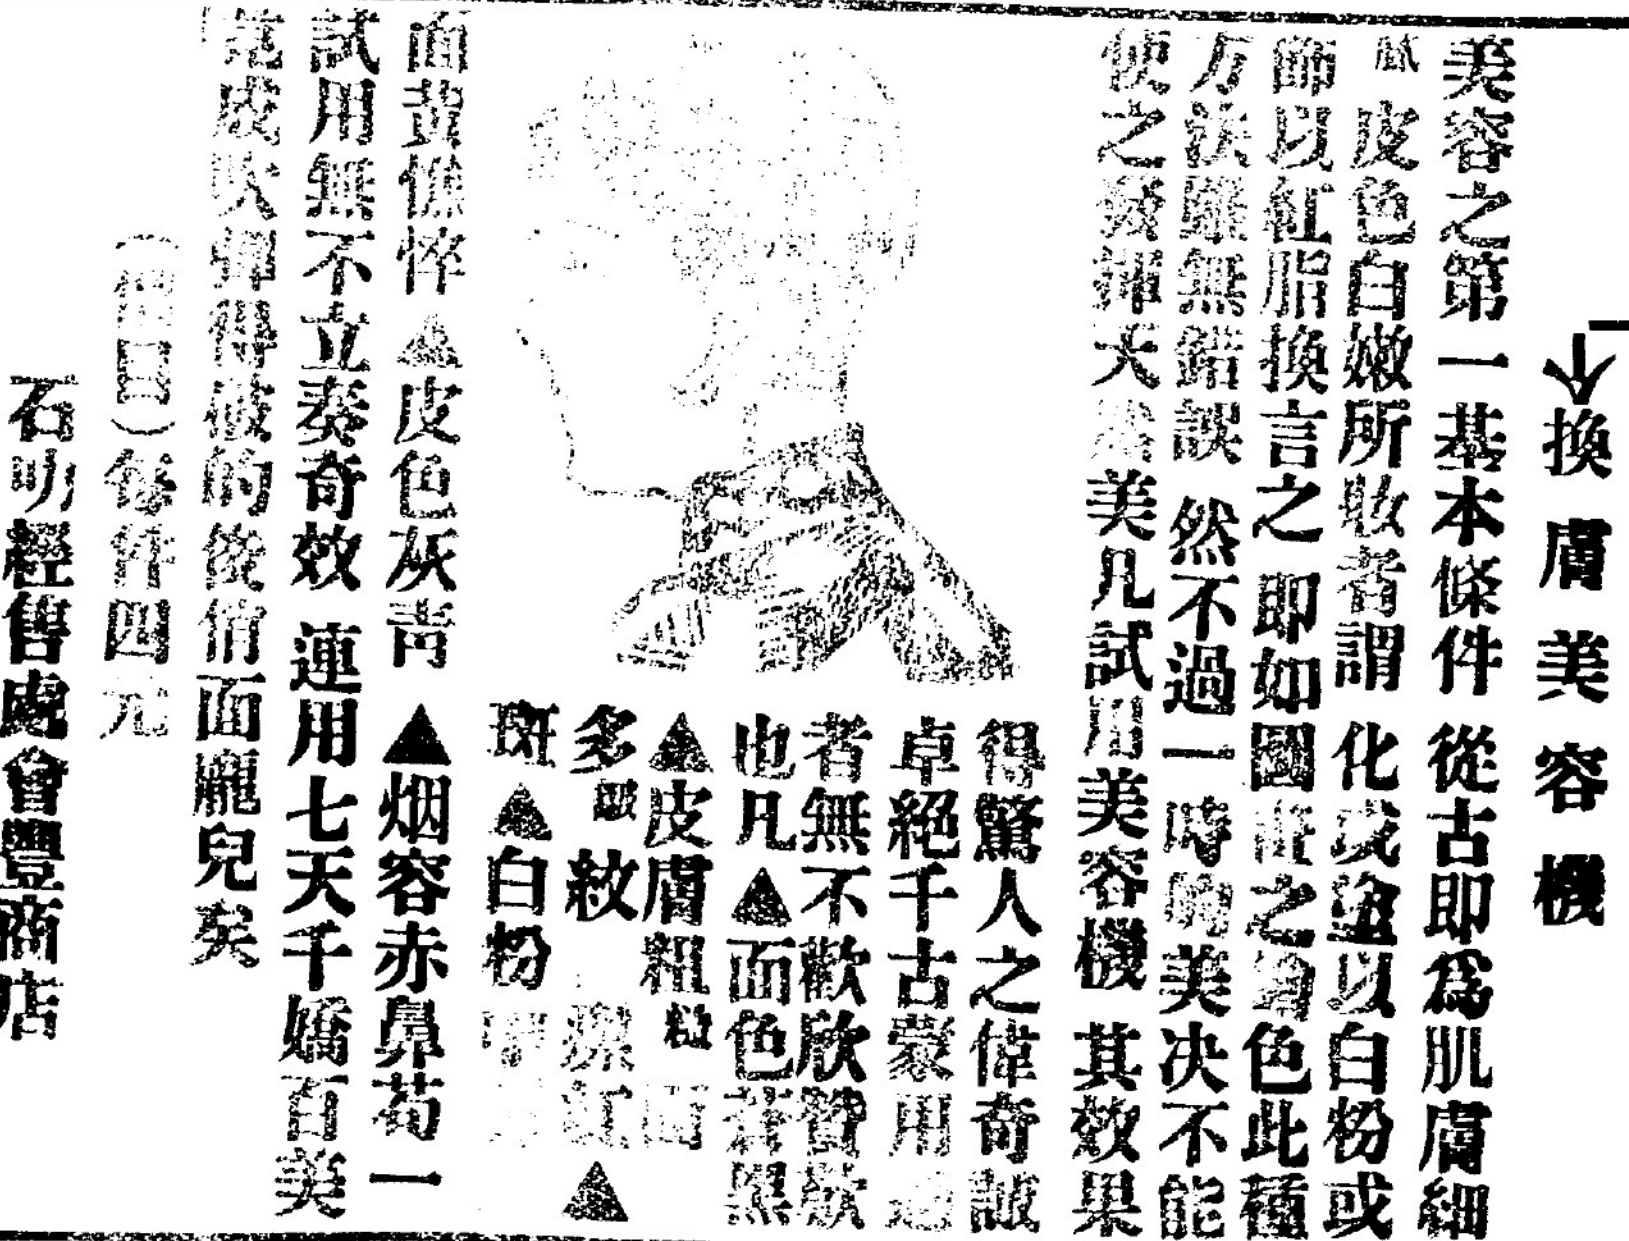 換膚美容機
美容之第一基本條件 從古即爲肌膚細
膩 皮色白嫩所妝者謂 化或塗以白粉或
飾以紅脂換言之 即如國 之 色此種
方法雖無錯誤 然不過一時的美决不能
使之發揮天然美凡試用美容機 其效果
得驚人之偉奇誠
卓絕千古蒙用過
者無不歡欣贊歎
也凡▲面色蒼黑
▲皮膚粗糙 面
多皺紋 ▲
斑▲白粉
面黃憔悴▲皮色灰青 ▲烟容赤鼻苟一
試用無不立奏奇效 連用七天千嬌百美
竟成吹彈得破的俊俏面龐兒矣
每件四元
石叻經售處會豐商店